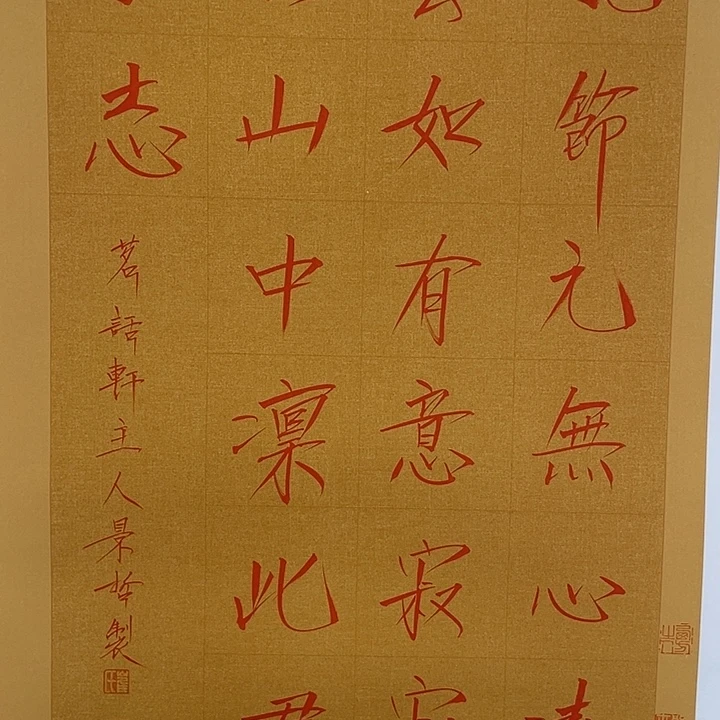 節元無心
如有意寂
山中凜此
志
茗話軒主人景哲製